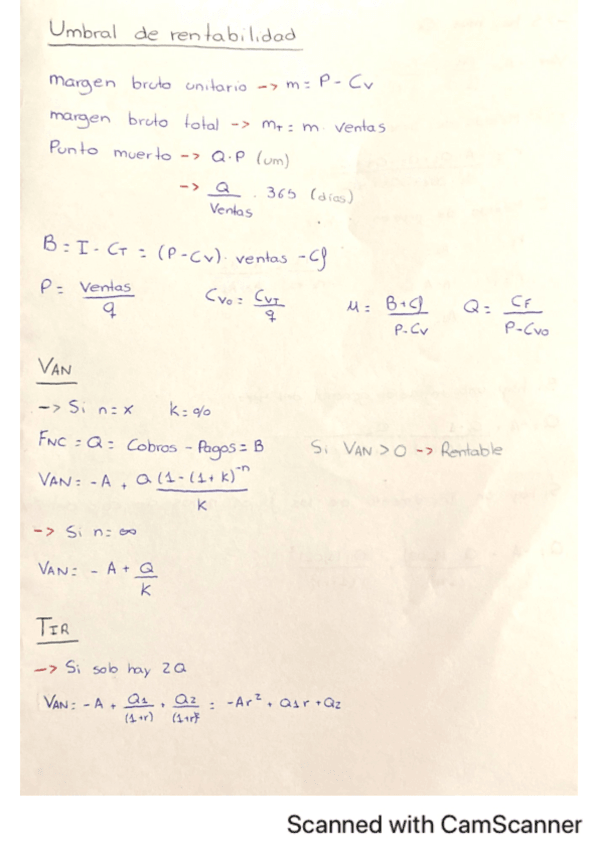 Umbral de rentabilidad
margen bruto unitario -> m = P - Cv
margen bruto total -> mT = m · ventas
Punto muerto -> Q · P (um)
-> Q / Ventas · 365 (días)
B = I - CT = (P - Cv) · ventas - Cf
P = Ventas / q    Cvo = CVT / q    M = B + Cf / P - Cv    Q = CF / P - Cvo
VAN
-> Si n = x    k = %
FNC = Q = Cobros - Pagos = B    Si VAN > 0 -> Rentable
VAN = -A + Q (1 - (1 + k)^-n / k
-> Si n = ∞
VAN = - A + Q / K
TIR
-> Si solo hay 2Q
VAN = -A + Q1 / (1+r) + Q2 / (1+r)² = -Ar² + Q1r + Q2
Scanned with CamScanner